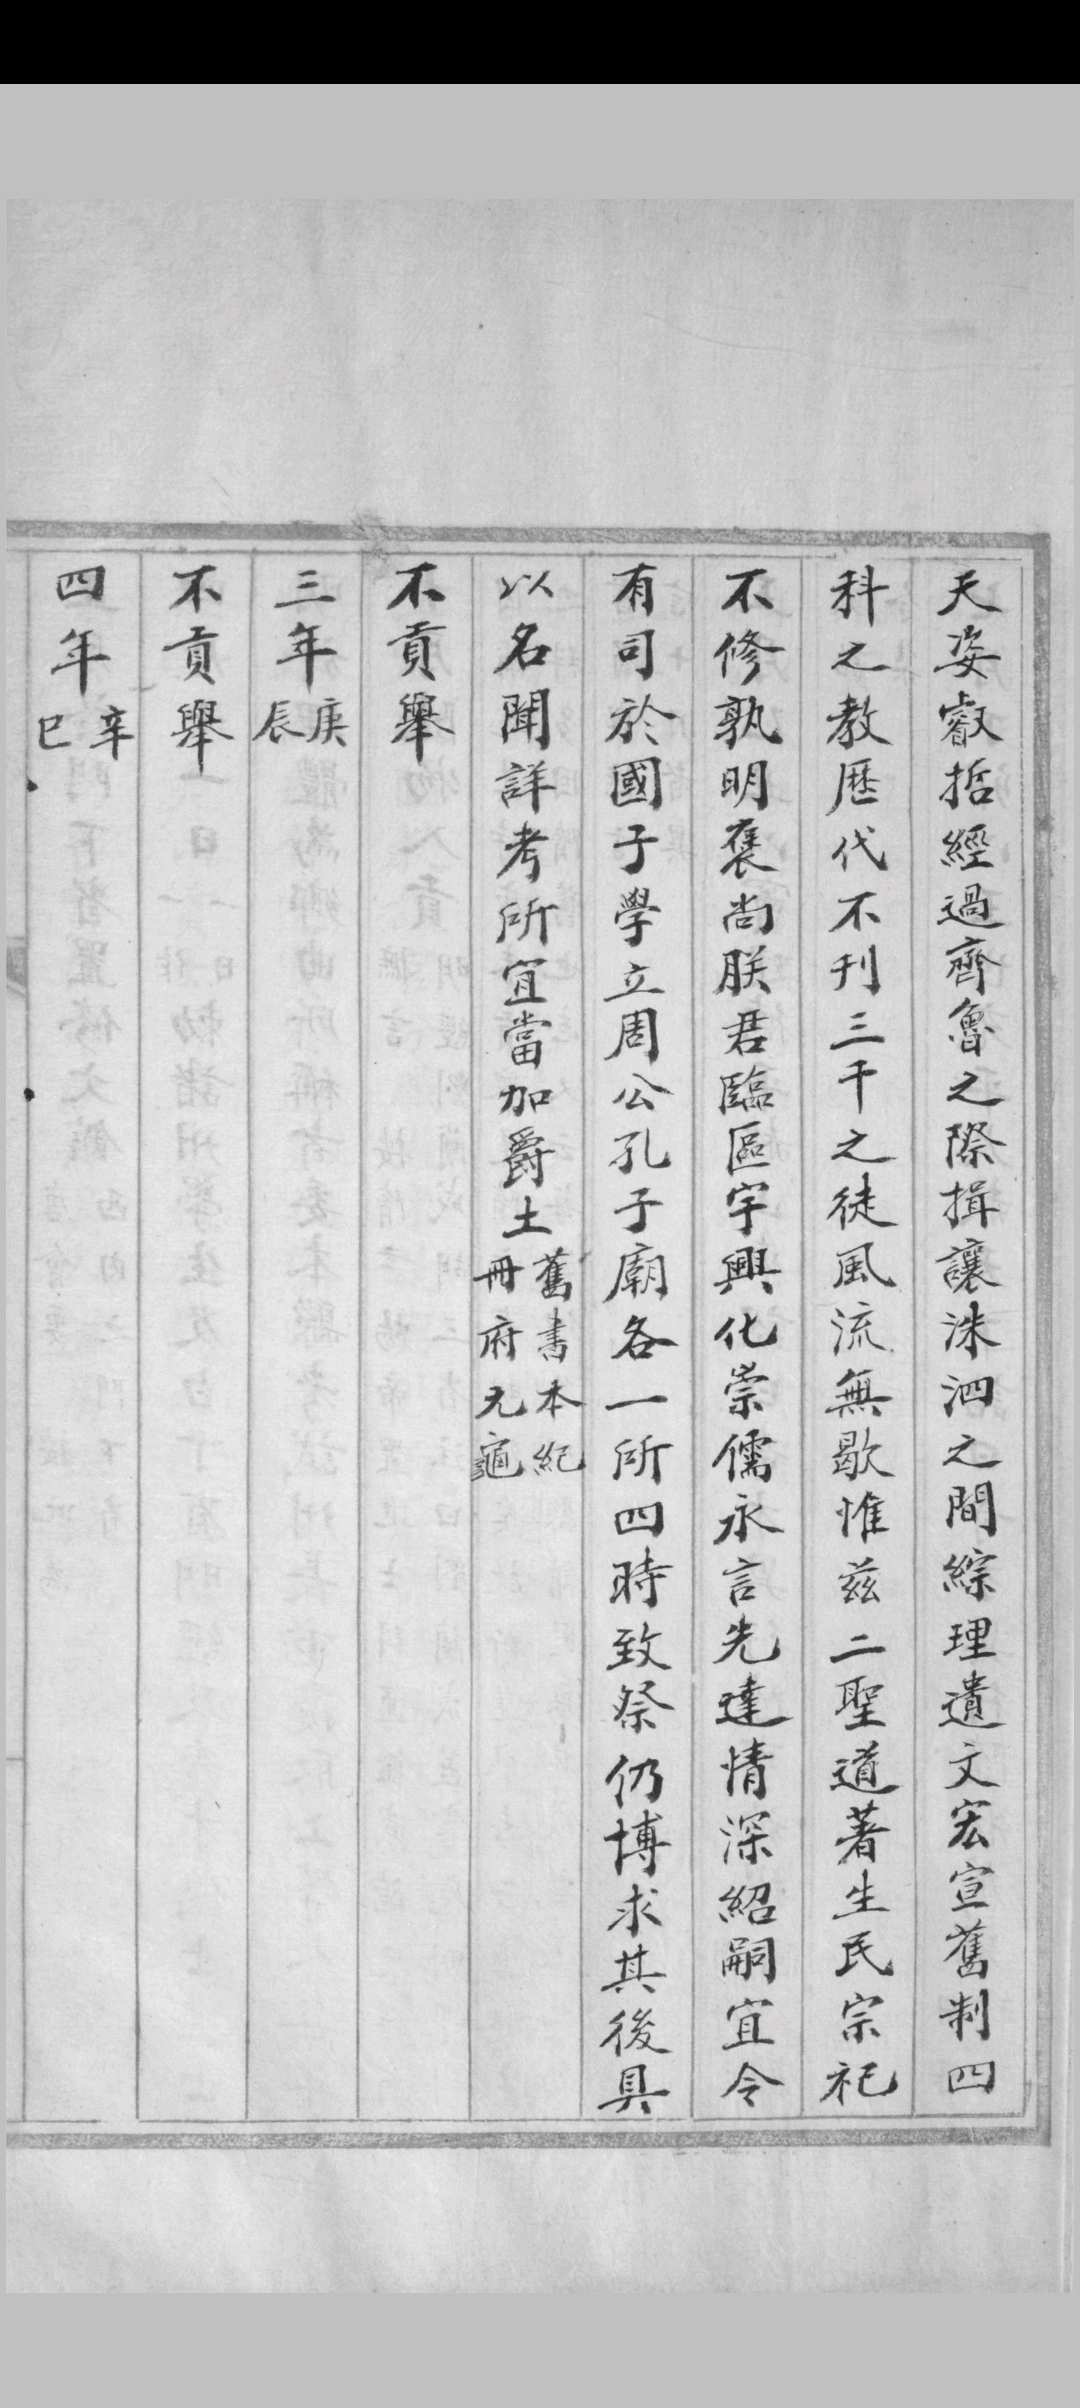 天姿睿哲經過齊魯之際揖讓洙泗之間綜理遺文宏宣舊制四
科之教歷代不刊三千之徒風流無歇惟茲二聖道著生民宗祀
不修孰明襃尚朕君臨區宇興化崇儒永言先達情深紹嗣宜令
有司於國子學立周公孔子廟各一所四時致祭仍博求其後具
以名聞詳考所宜當加爵土舊書本紀冊府元龜
不貢舉
三年庚辰
不貢舉
四年辛巳